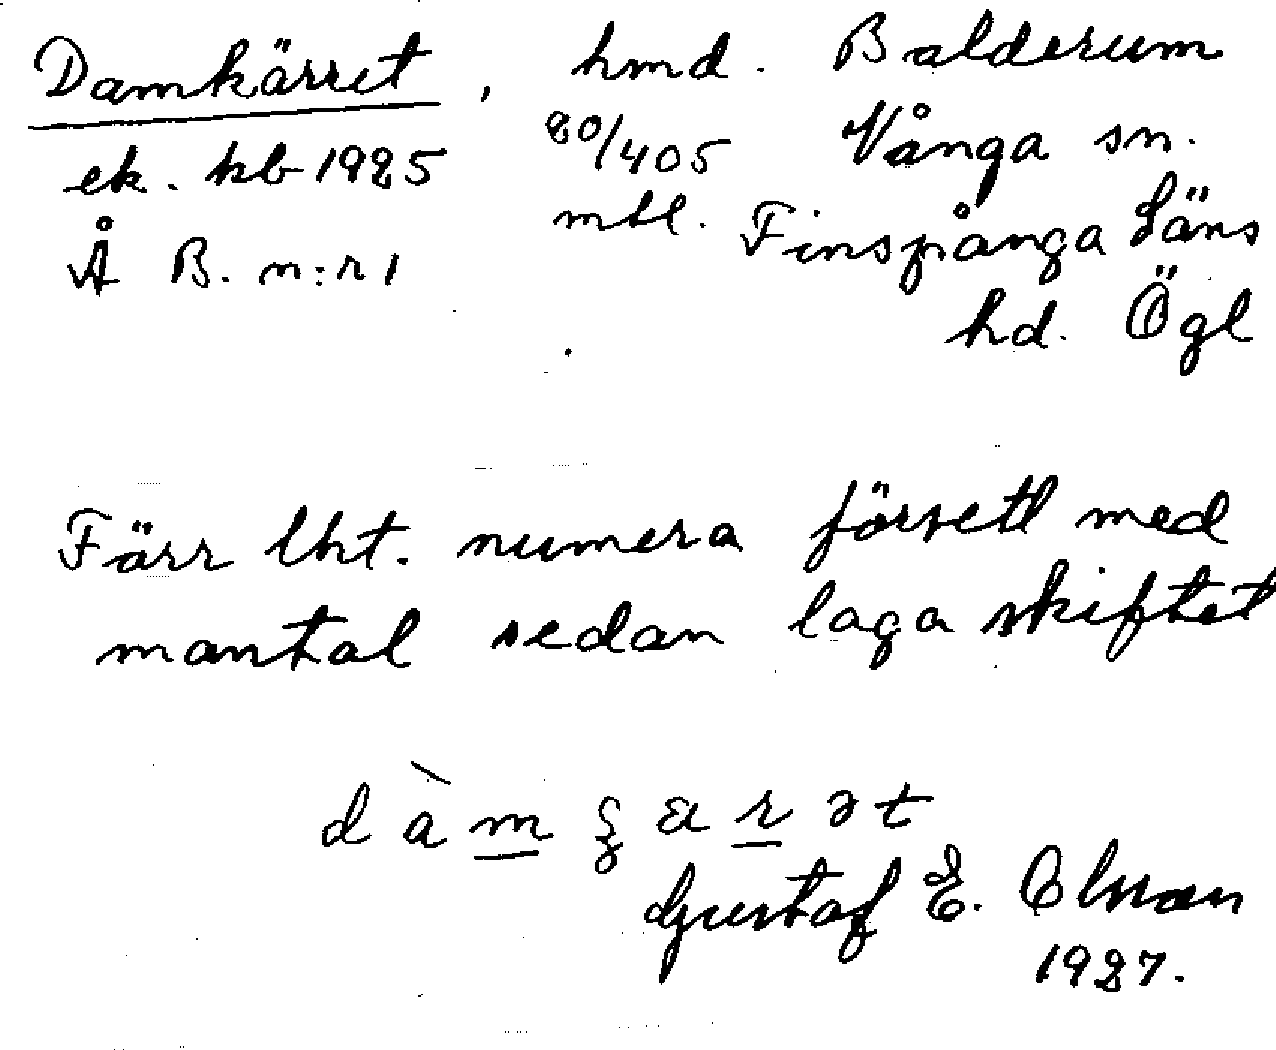 Damkärret, hmd. Balderum
ek. kb 1925 20/405 Vånga sn.
mtl. Finspånga Läns
Å B. n:r 1
hd. Ögl
Färr lht. numera försett med
mantal sedan laga skiftet
dàm ʂ a r ət
Gustaf E. Olsson
1927.